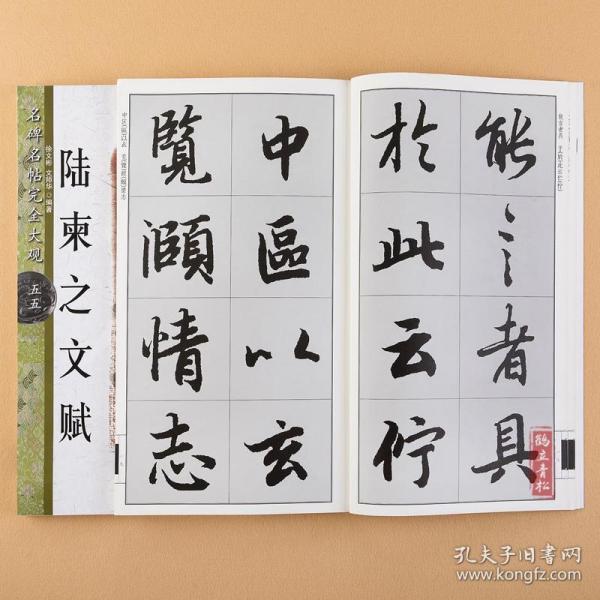 陆柬之文赋
名碑名帖完全大观
五五
徐文彬 文师华 编著
能言者具
於此云佇
中區以玄
覽頤情志
鹤立青松
孔夫子旧书网
www.kongfz.com